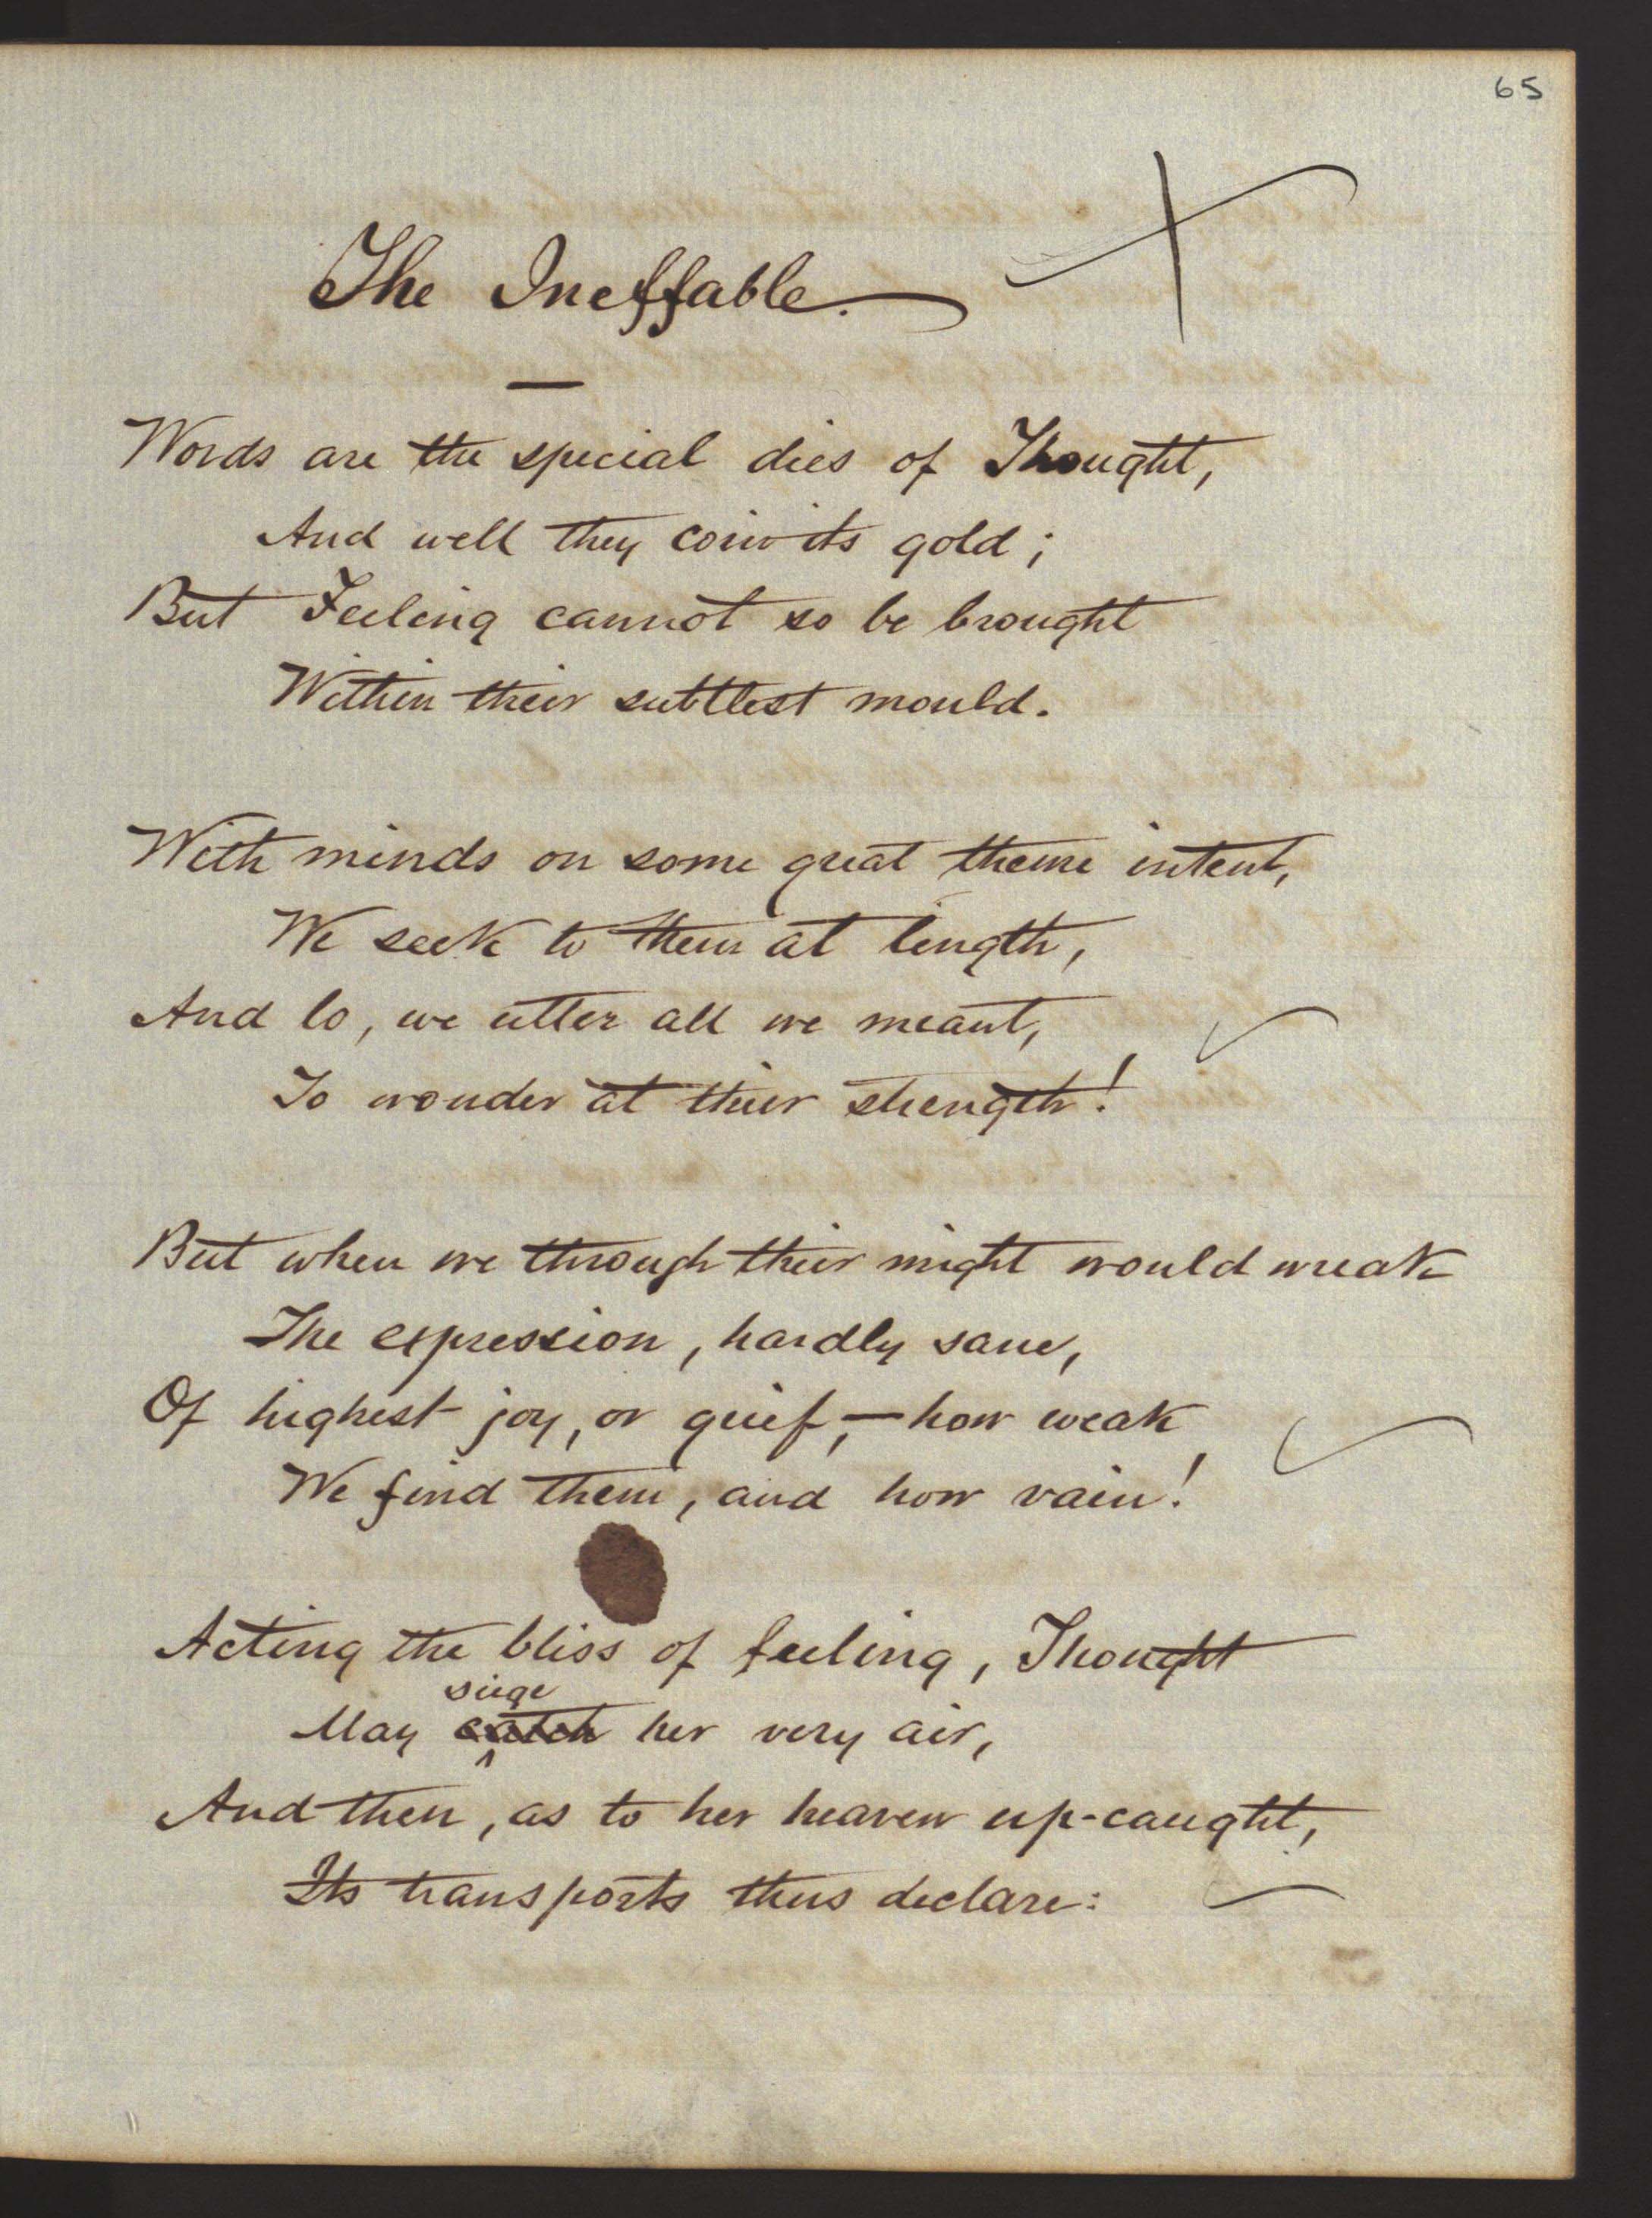 65
The Ineffable.
Words are the special dies of Thought,
And well they coin its gold;
But Feeling cannot so be brought
Within their subtlest mould.
With minds on some great theme intent,
We seek to them at length,
And lo, we utter all we meant,
To wonder at their strength!
But when we through their might would wreak
The expression, hardly sane,
Of highest joy, or grief,—how weak
We find them, and how vain!
Acting the bliss of feeling, Thought
siege
May catch her very air,
And then, as to her heaven up-caught,
Its transports thus declare: